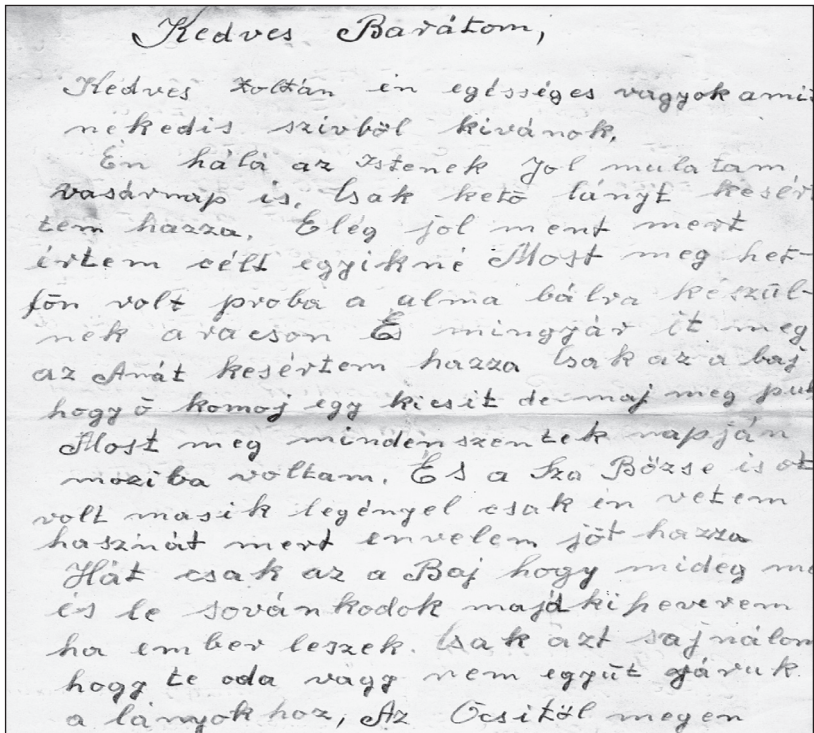 Kedves Barátom,
Kedves Zoltán én egésséges vagyok ami
nekedis szivböl kivánok.
Én hálá az Istenek Jol mulatam
vasárnap is. Csak ketö lányt kesér
tem hazza. Elég jol ment mert
értem célt egyikné Most meg het-
fön volt proba a alma bálra készül-
nek aracson És mingyár it meg
az Anát kesértem hazza Csak az a baj
hogy ö komoj egy kicsit de maj meg pu
Most meg mindenszentek napján
moziba voltam. És a Sza Bözse is ot
volt masik legényel csak én vetem
hasznát mert énvelem jöt hazza
Hát csak az a Baj hogy mideg
és le sovánkodok majd kiheverem
ha ember leszek. Csak azt sajnálom
hogy te oda vagy nem együt járuk
a lányokhoz, Az Öcsitöl megen